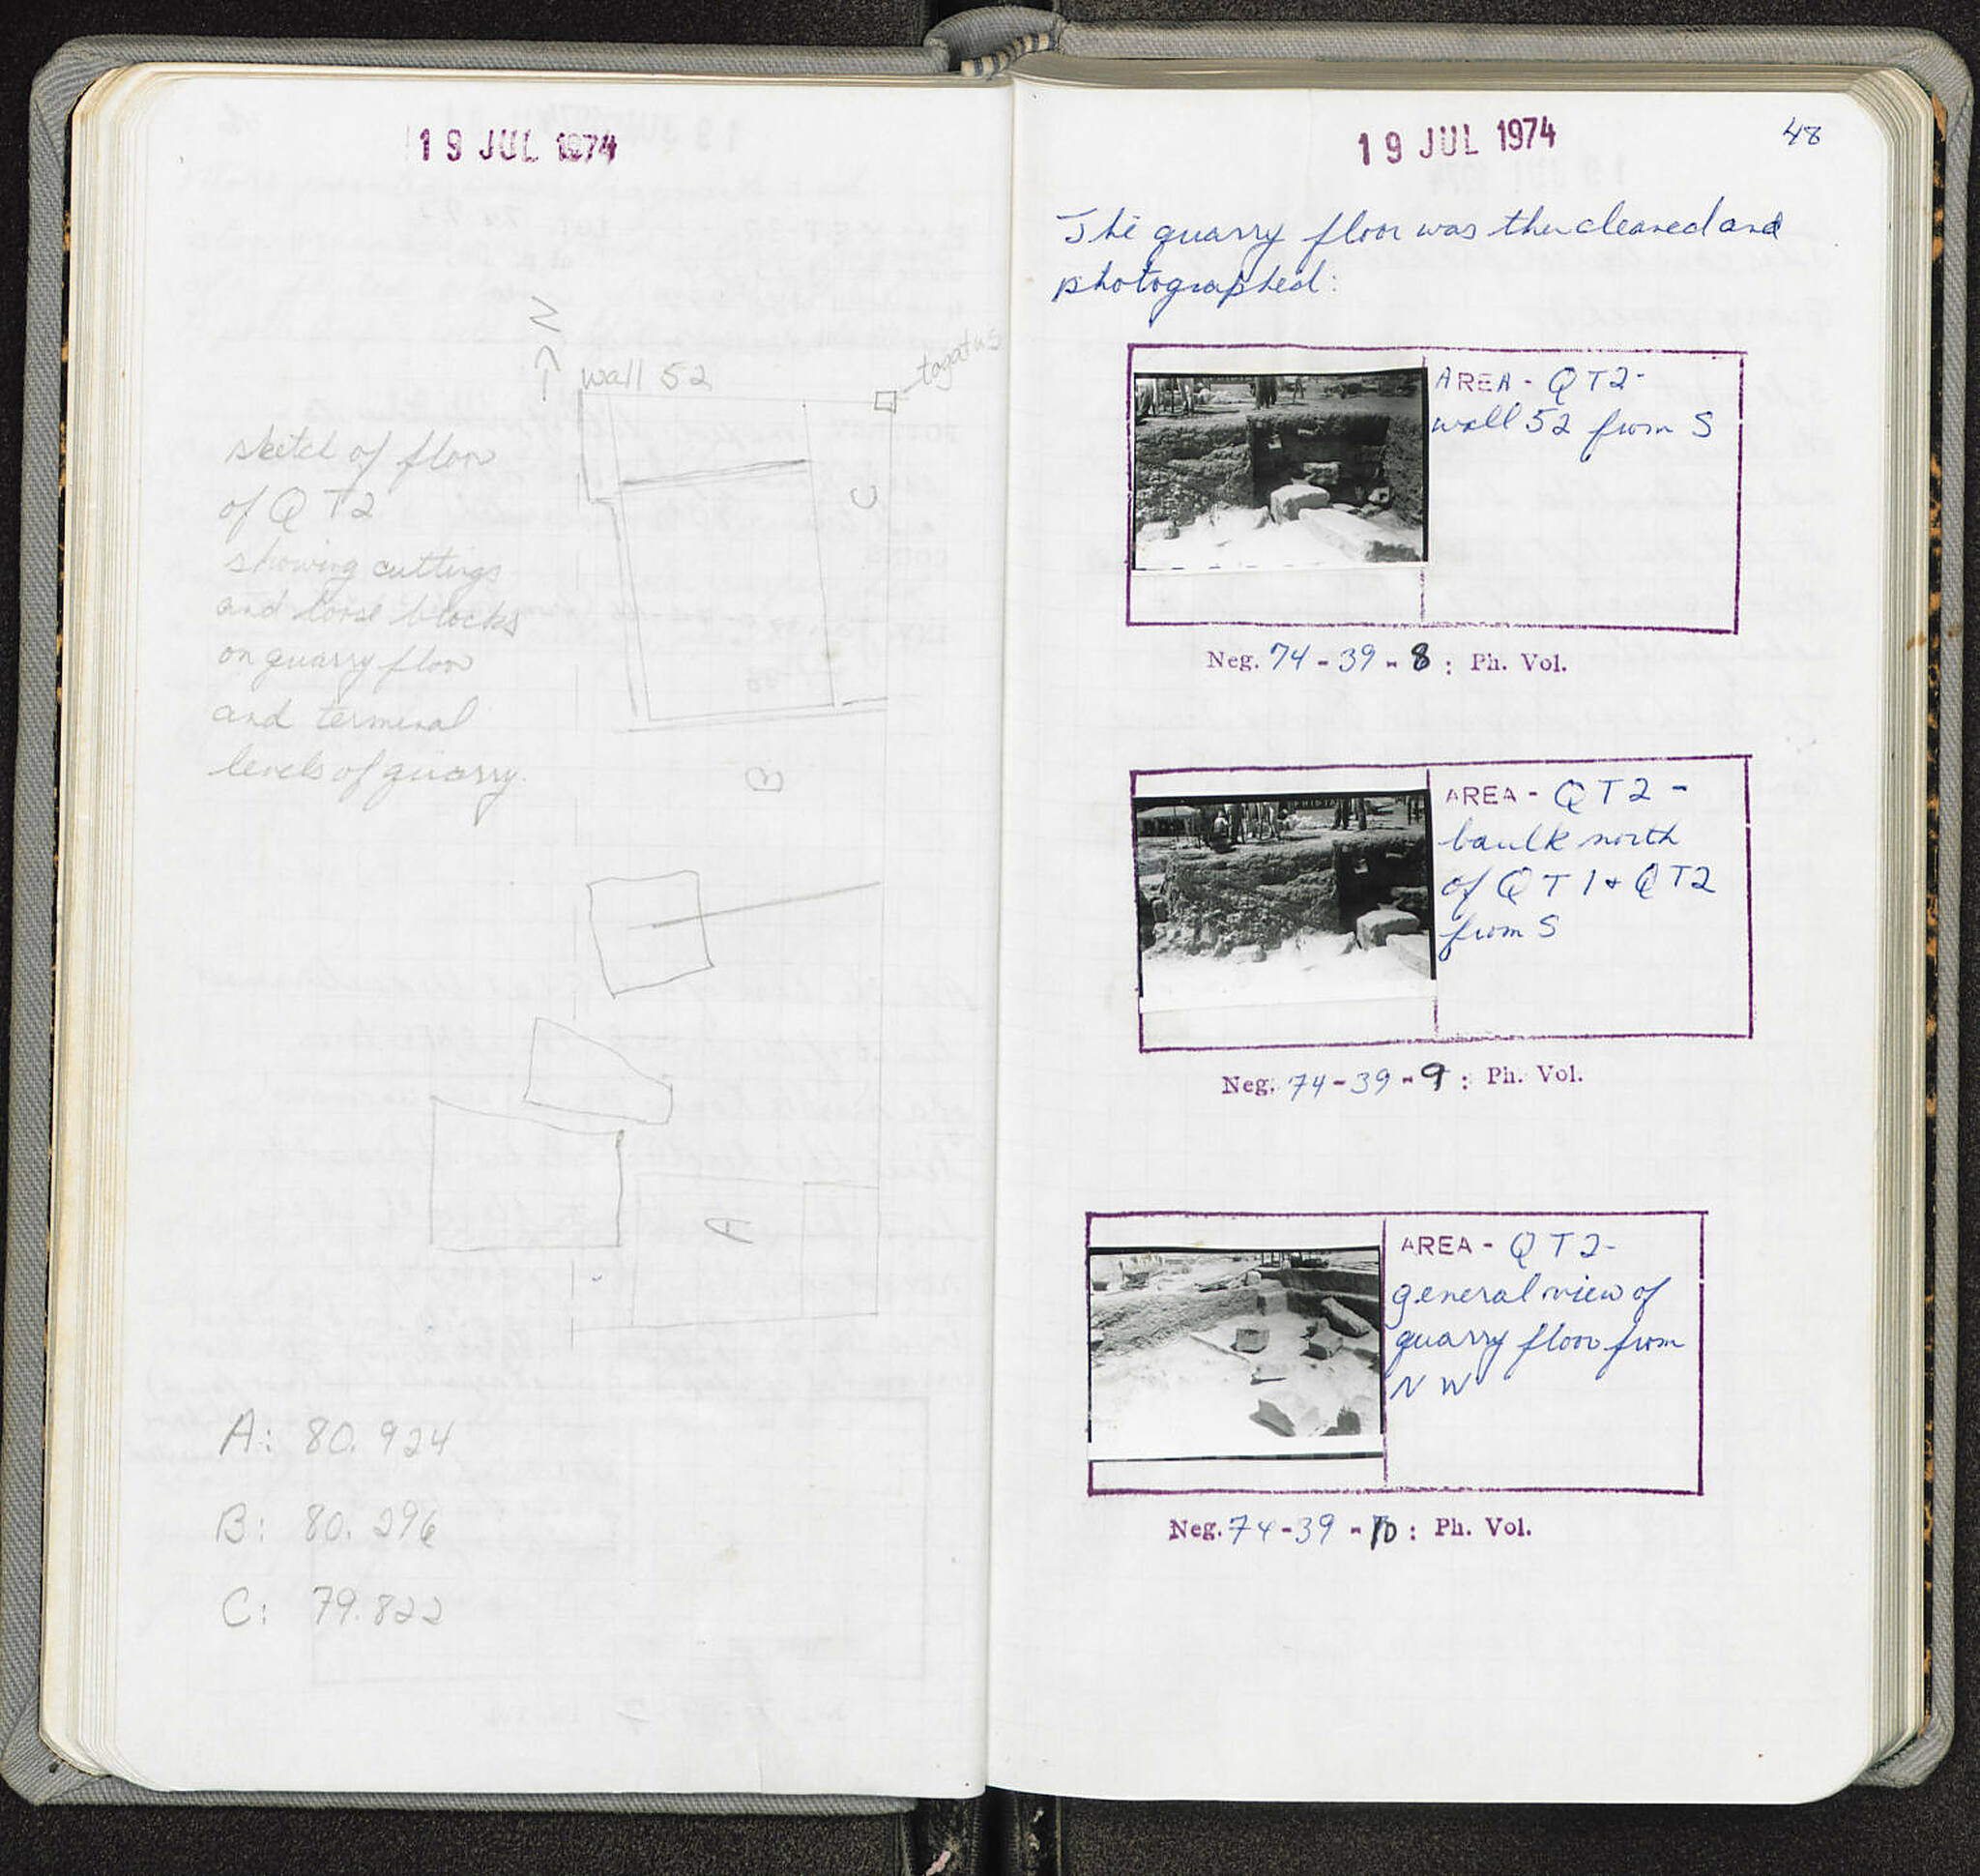 19 JUL 1974
N
wall 52
togatus
sketch of floor
of QT2
showing cuttings
and loose blocks
on quarry floor
and terminal
levels of quarry.
C
B
A
A: 80.924
B: 80.296
C: 79.822
19 JUL 1974
48
The quarry floor was then cleaned and
photographed:
AREA - QT2-
wall 52 from S
Neg. 74-39-8: Ph. Vol.
AREA - QT2-
baulk north
of QT1+QT2
from S
Neg. 74-39-9: Ph. Vol.
AREA - QT2-
general view of
quarry floor from
NW
Neg. 74-39-10: Ph. Vol.